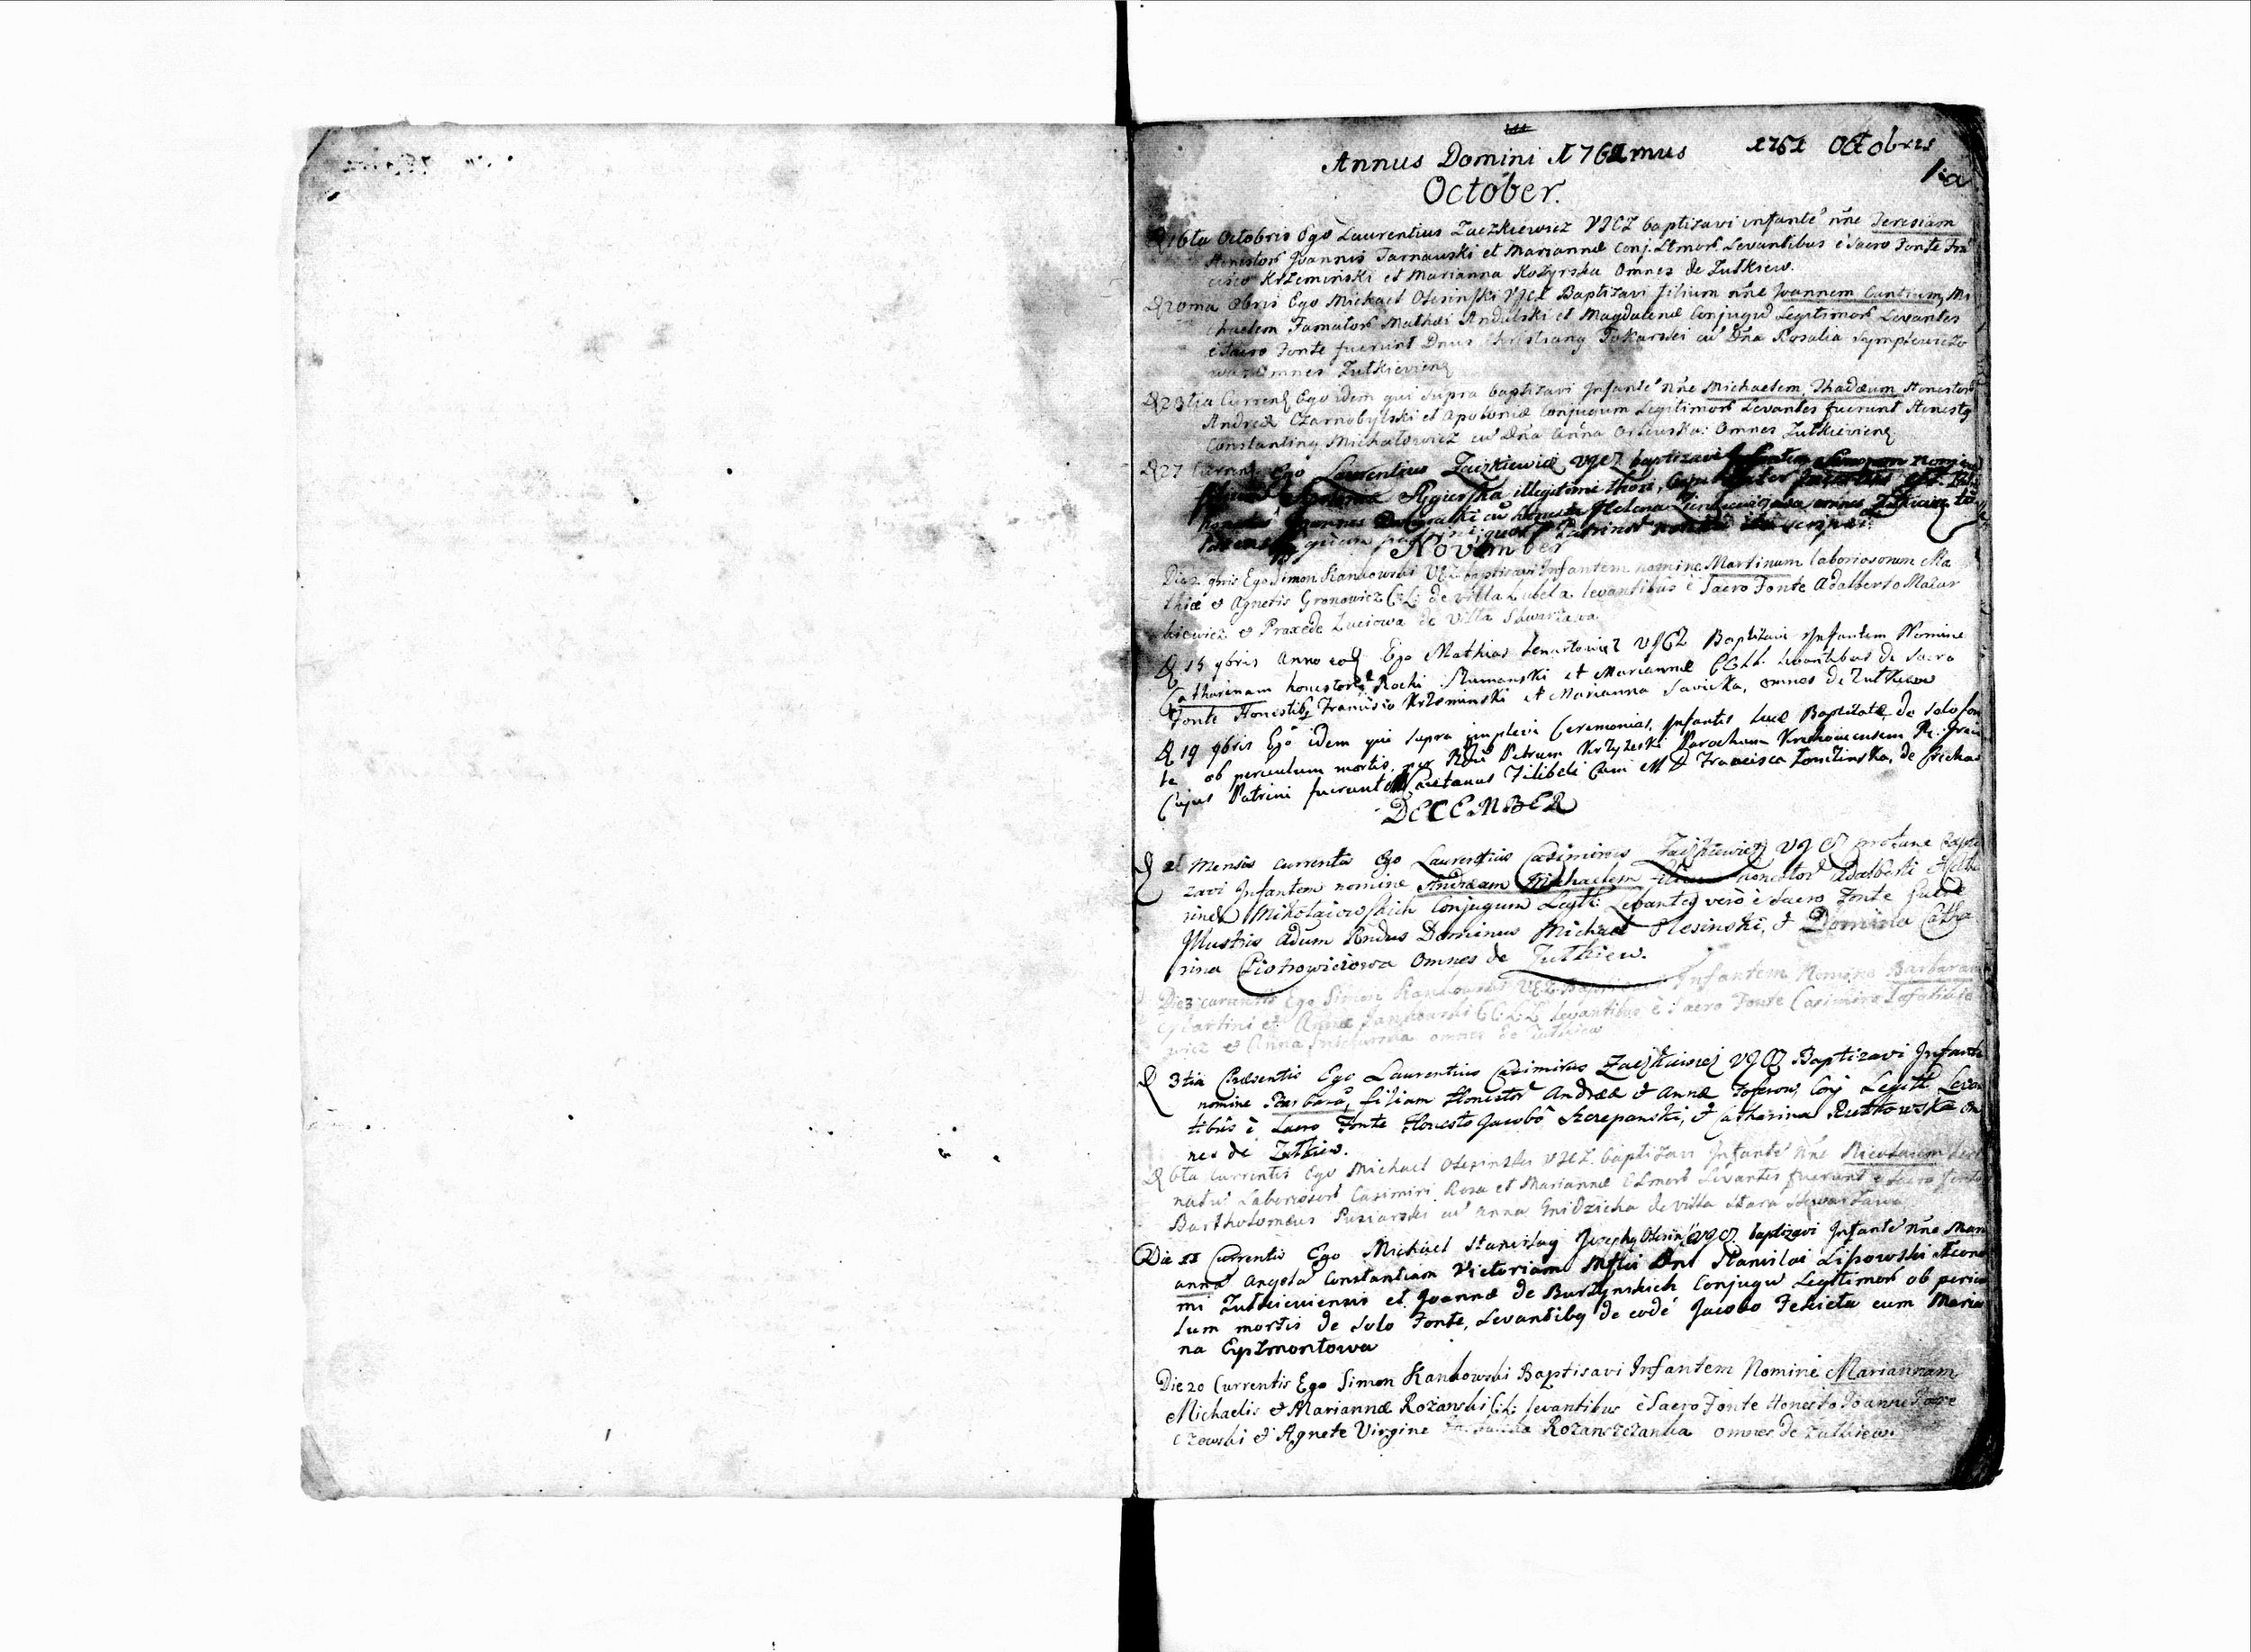 Annus Domini 1761mus 1761 Octobris
1a
October.
D 16ta Octobris Ego Laurentius Zaczkiewicz VJCZ baptisavi infante' nne Teresiam
Honestor Joannis Tarnawski et Mariannæ Conj. Ltmor Levantibus è Sacro Fonte Fran
cisco Krzeminski et Marianna Kozyrska Omnes de Zutkiew.
D 20ma 8bris Ego Michael Olesinski VJCZ Baptisavi Filium nne Joannem Cantium, Mi
chaelem Famator Mathæi Andulski et Magdalenæ Conjugu Legitimor Levantes
è Sacro Fonte fuerunt Dnus Tokarski cu Dna Rosalia
Omnes Zutkieviens
D 23tia Currens Ego idem qui supra baptisavi Infante' nne Michaelem Thadæum Honestor
Andreæ Czarnobylski et Apoloniæ Conjugum Legitimor Levantes fuerunt Honestq
Constantinq Michatowicz cu Dna Anna Orlewska: Omnes Zutkieviens
D 27 Currens Ego Laurentius Zaczkiewicz VJCZ baptizavi Infantem nomine
illegitimi thori,
Joannes cu honesta Helena omnes
November
Die 2 9bris Ego Simon Kankowski VCZ baptisavi Infantem nomine Martinum laboriosorum Ma
thiæ & Agnetis Gronowicz C:L: de villa Lubela levantibus è Sacro Fonte Adalberto Mazur
kiewicz & Praxede Zuciowa de Villa
D 15 9bris Anno eod Ego Mathias Lenartowicz VJCZ Baptizavi Infantem Nomine
Catharinam honestor Rochi Szumanski et Mariannæ CCLL levantibus de Sacro
Fonte Honestibq Francisco Krzeminski et Marianna Savicka, omnes de Zutkiew
D 19 9bris Ego idem qui supra implevi Ceremonias, Infantis Lucæ Baptizatæ de solo fon
te ob periculum mortis, per Rdu Petrum Krzyzeski Parochum
Cujus Patrini fuerunt Caietanus Filibeli cum M D Francisca Tomilinska, de
DECEMBER
D 2 Mensis currentis Ego Laurentius Casimirus Zaczkiewicz VJCZ Bapti
zavi Infantem nomine Andream Michaelem filium honestor Adalberti & Catha
rinæ Mikolaiowskich Conjugum Legit: Levantes verò è Sacro Fonte fuere
Illustris Adum Rndus Dominus Michael Olesinski, & Domina Catha
rina Piotrowiczowa Omnes de Zutkiew.
Die 3 currentis Ego Simon Kankowski VCZ Baptisavi Infantem Nomine Barbaram
Martini et Annæ Jankowski CC:LL levantibus è Sacro Fonte Casimiro
wicz & Anna omnes de Zutkiew
D 3tia Præsentis Ego Laurentius Casimirus Zaczkiewicz VJCZ Baptizavi Infante
nomine Barbara, filiam Honestor Andreæ & Annæ Conj Legit Levan
tibus è Sacro Fonte Honesto Jacobo Szczepanski, & Catharina Rutkowska Om
nes de Zutkiew.
D 6ta Currentis Ego Michael Olesinski VJCZ. baptizavi Infante' nne Nicolaum
natu' Laboriosor Casimiri Roza et Mariannæ CLmor Levantes fuerunt e Sacro fonte
Bartholomæus Pusiarski cu Anna Gnidzicha de villa Stara
Die 11 Currentis Ego Michael Stanislaq Josephq Olesinski VJCZ baptizavi Infante' nne Mari
anna' Angela' Constantiam Victoriam Mgfici Dni Stanislai Lipowski Æcono
mi Zutkieviensis et Joannæ de Burzynskich Conjugu Legitimor ob pericu
lum mortis de solo Fonte, Levantibq de eode' Jacobo Felicita cum Maria
na Eyszmontowa
Die 20 Currentis Ego Simon Kankowski Baptisavi Infantem Nomine Mariannam
Michaelis & Mariannæ Rozanski C:L: levantibus è Sacro Fonte Honesto Joanne
czewski & Agnete Virgine Rozanszczanka omnes de Zutkiew.